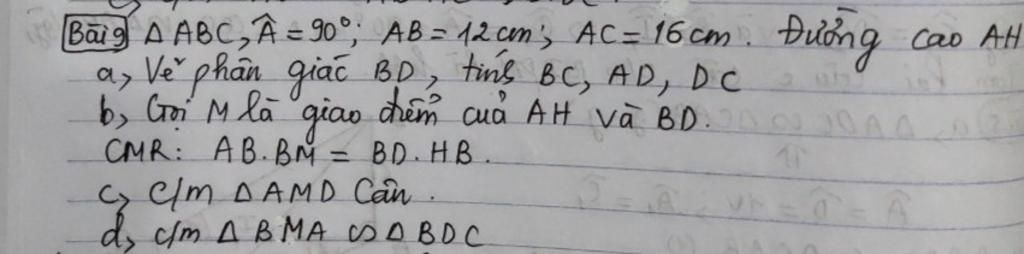 Bài 9 Δ ABC, Â = 90°; AB = 12 cm; AC = 16 cm. Đường cao AH
a, Vẽ phân giác BD, tính BC, AD, DC
b, Gọi M là giao điểm của AH và BD.
CMR: AB.BM = BD.HB.
c, c/m Δ AMD Cân.
d, c/m Δ BMA ∽ Δ BDC